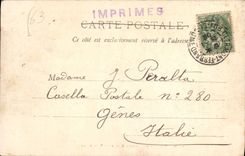 63
IMPRIMES
CARTE POSTALE
Ce côté est exclusivement réservé à l'adresse
Madame J. Peralta
Casella Postale n° 280
Gênes
Italie